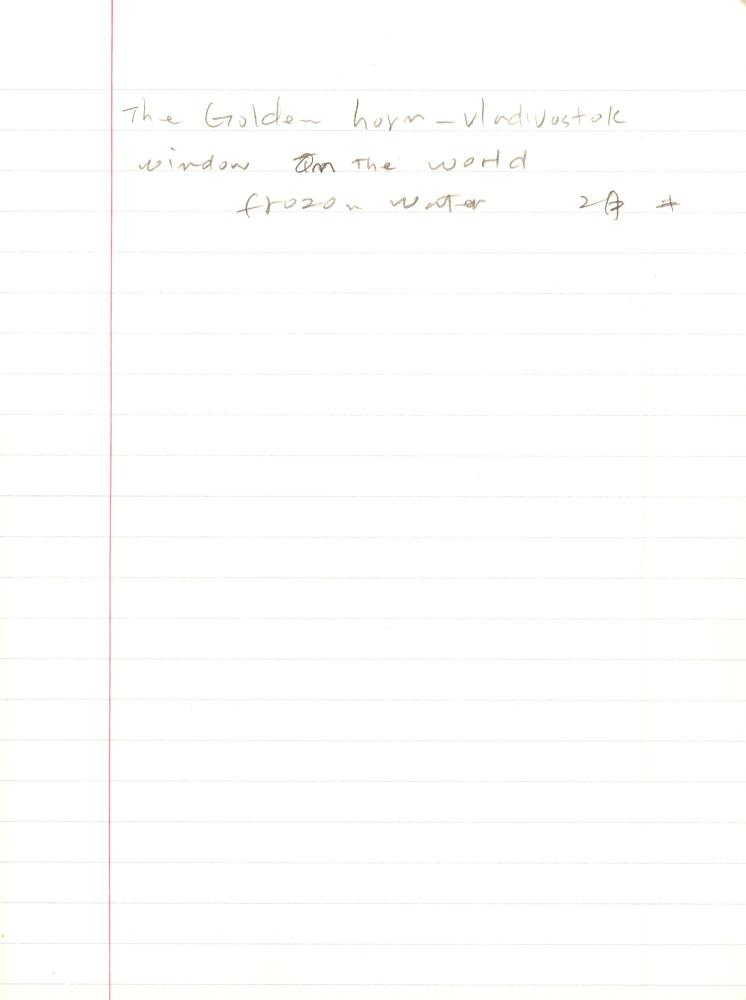 The Golden horn - Vladivostok
window on the world
frozon water